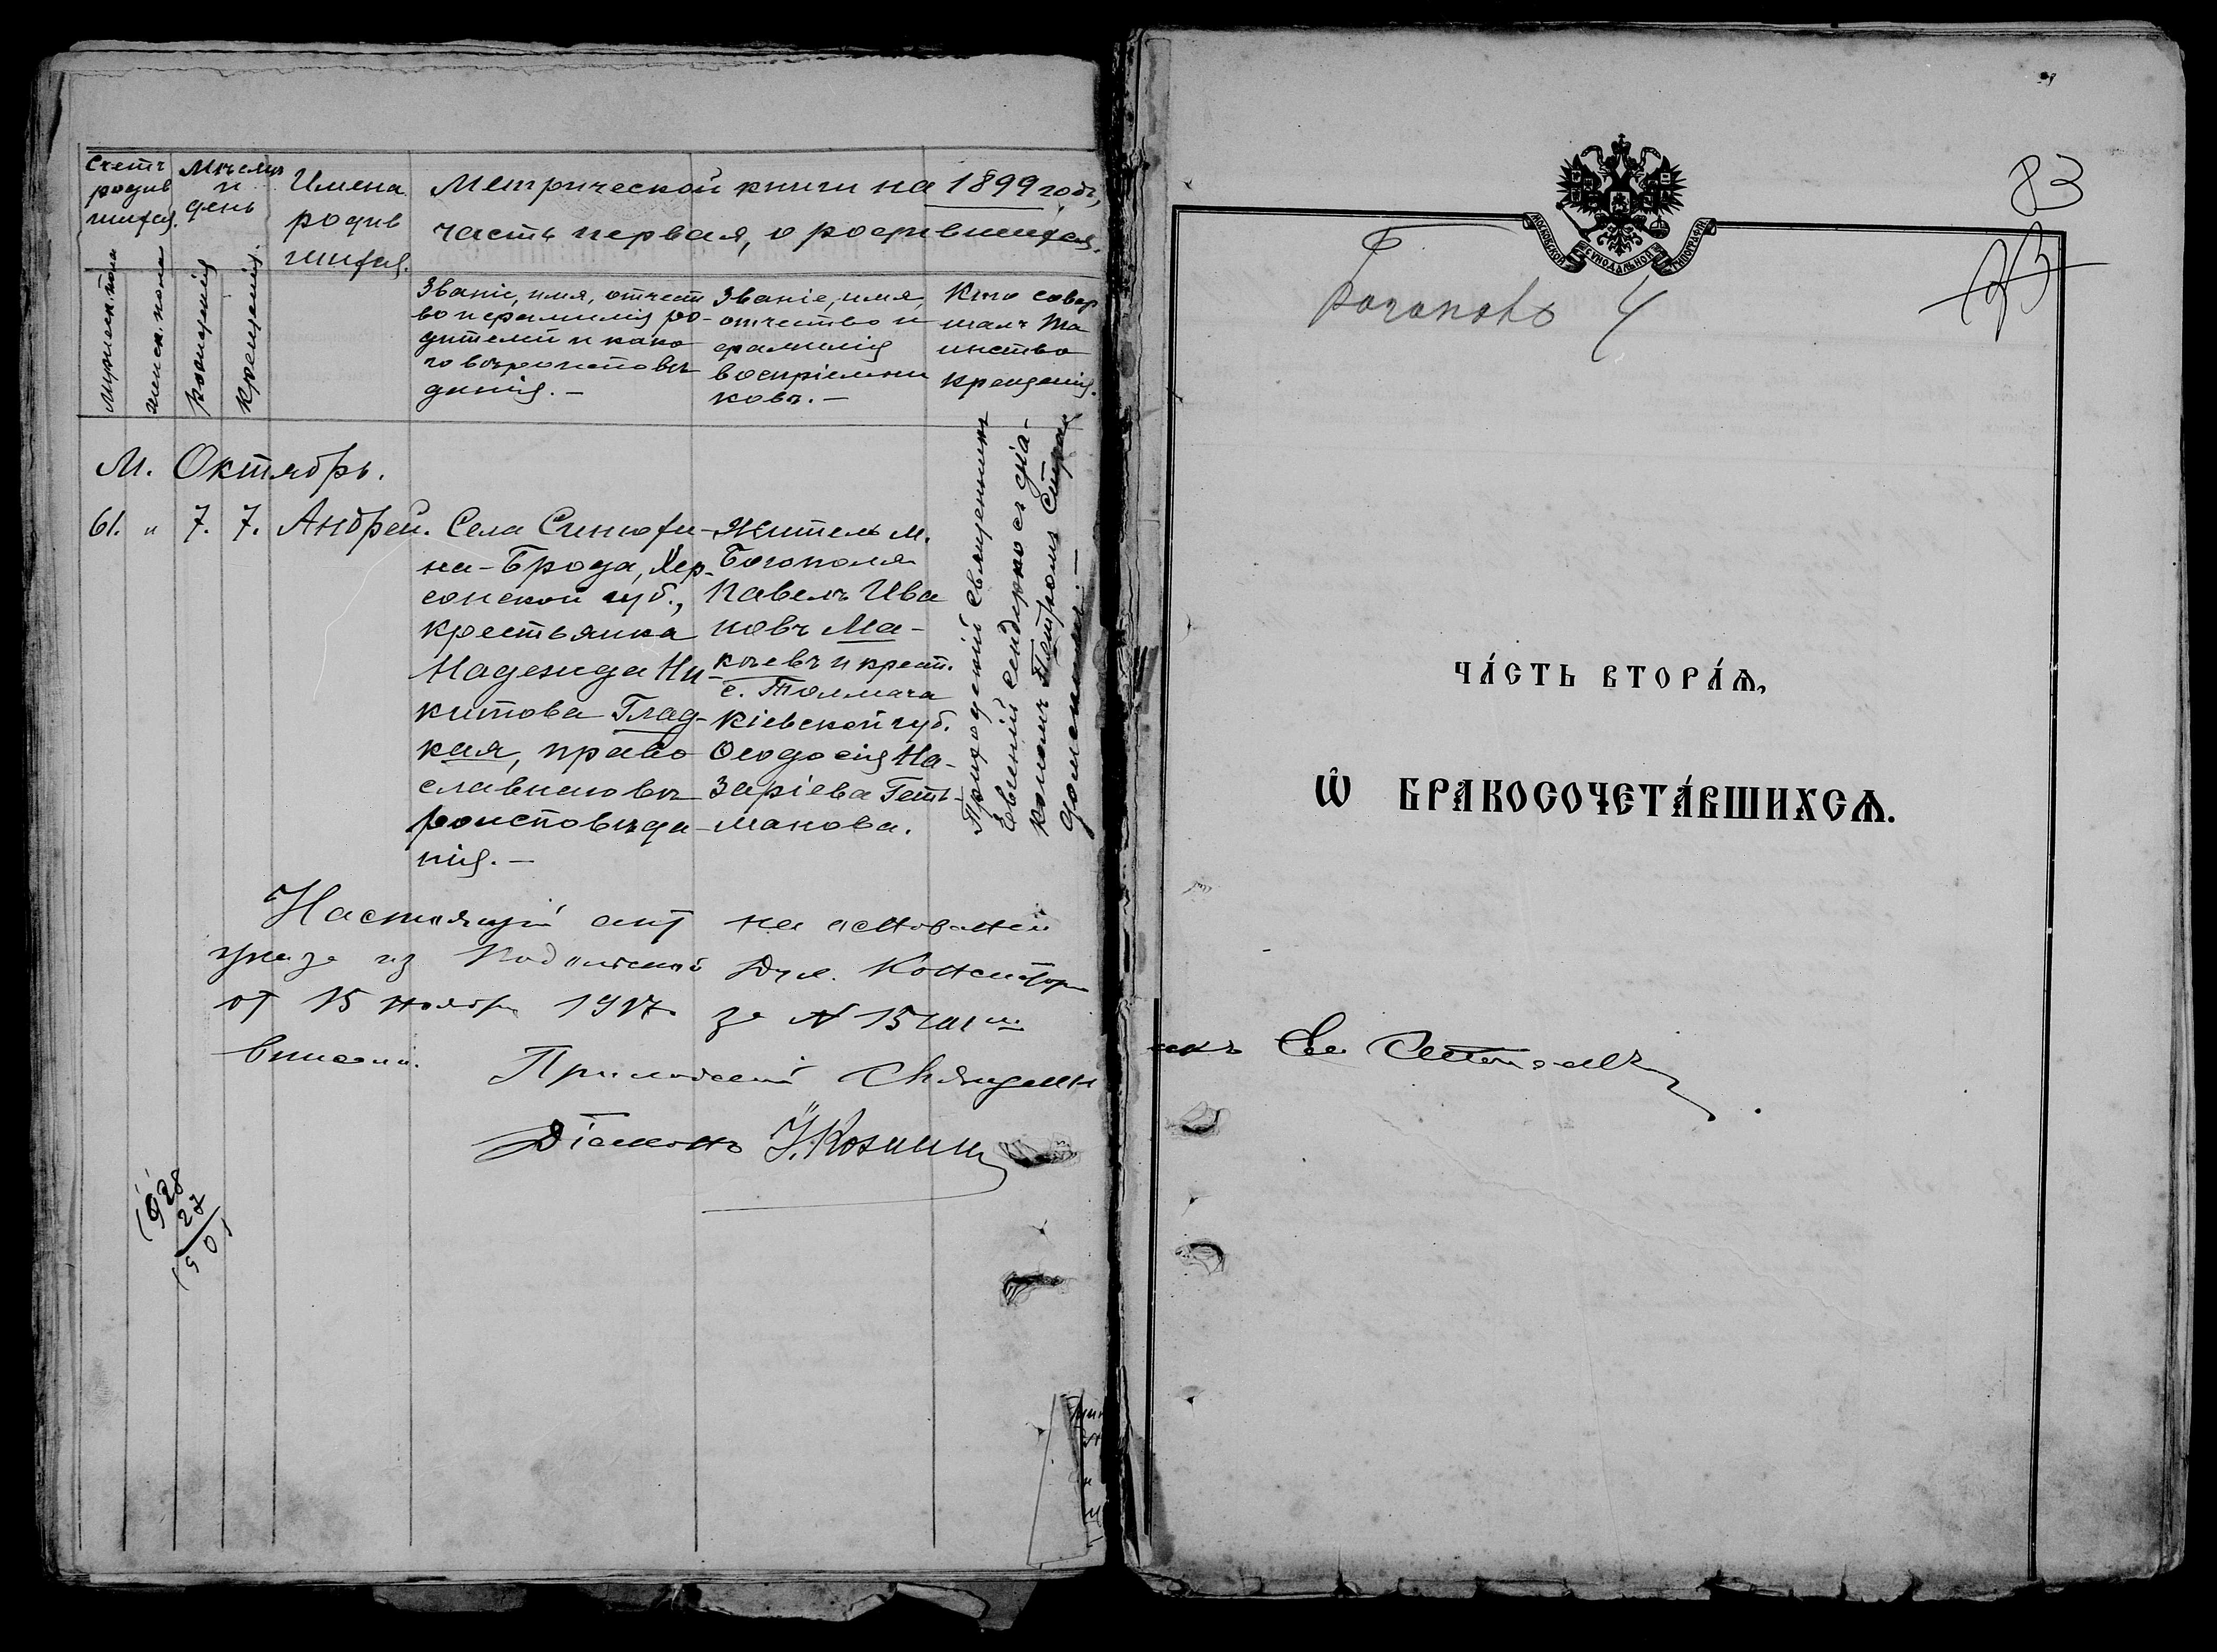 Счетъ родив шихся.
Мѣсяцъ и день
Имена родив шихся.
Метрической книги на 1899 годъ,
часть первая, о родившихся.
мужеск. пола
женск. пола
рожденія
крещенія.
Званіе, имя, отчест
во и фамилія ро-
дителей и како
го вѣроисповѣ
данія.—
Званіе, имя,
отчество и
фамилія
воспріемни
ковъ.—
Кто совер
шалъ та
инство
крещенія.
М. Октябрь.
61. " 7. 7. Андрей.
Села Синюхи-
на-Брода, Хер-
сонской губ.,
крестьянка
Надежда Ни-
китова Глад-
кая, право
славнаго вѣ
роисповѣда
нія.—
Житель м.
Богополя
Павелъ Ива
новъ Ма-
кѣевъ и крест.
с. Толмача
Кіевской губ.
Ѳеодосія На-
заріева Геть-
манова.
Приходскій священникъ
Евгеній Сендерко съ діа-
кономъ Петромъ
Настоящій акт на основаніи
указа из Подольской Дух. Консистор
от 15 ноября 1917 за №
вписанъ.
Приходскій Священн
Діаконъ
1928
27
1901
83
МОСКОВСКОЙ СѴНОДАЛЬНОЙ ТИПОГРАФІИ
4
ЧА́СТЬ ВТОРА́Ѧ,
Ѡ БРАКОСОЧЕТА́ВШИХСѦ.
икъ